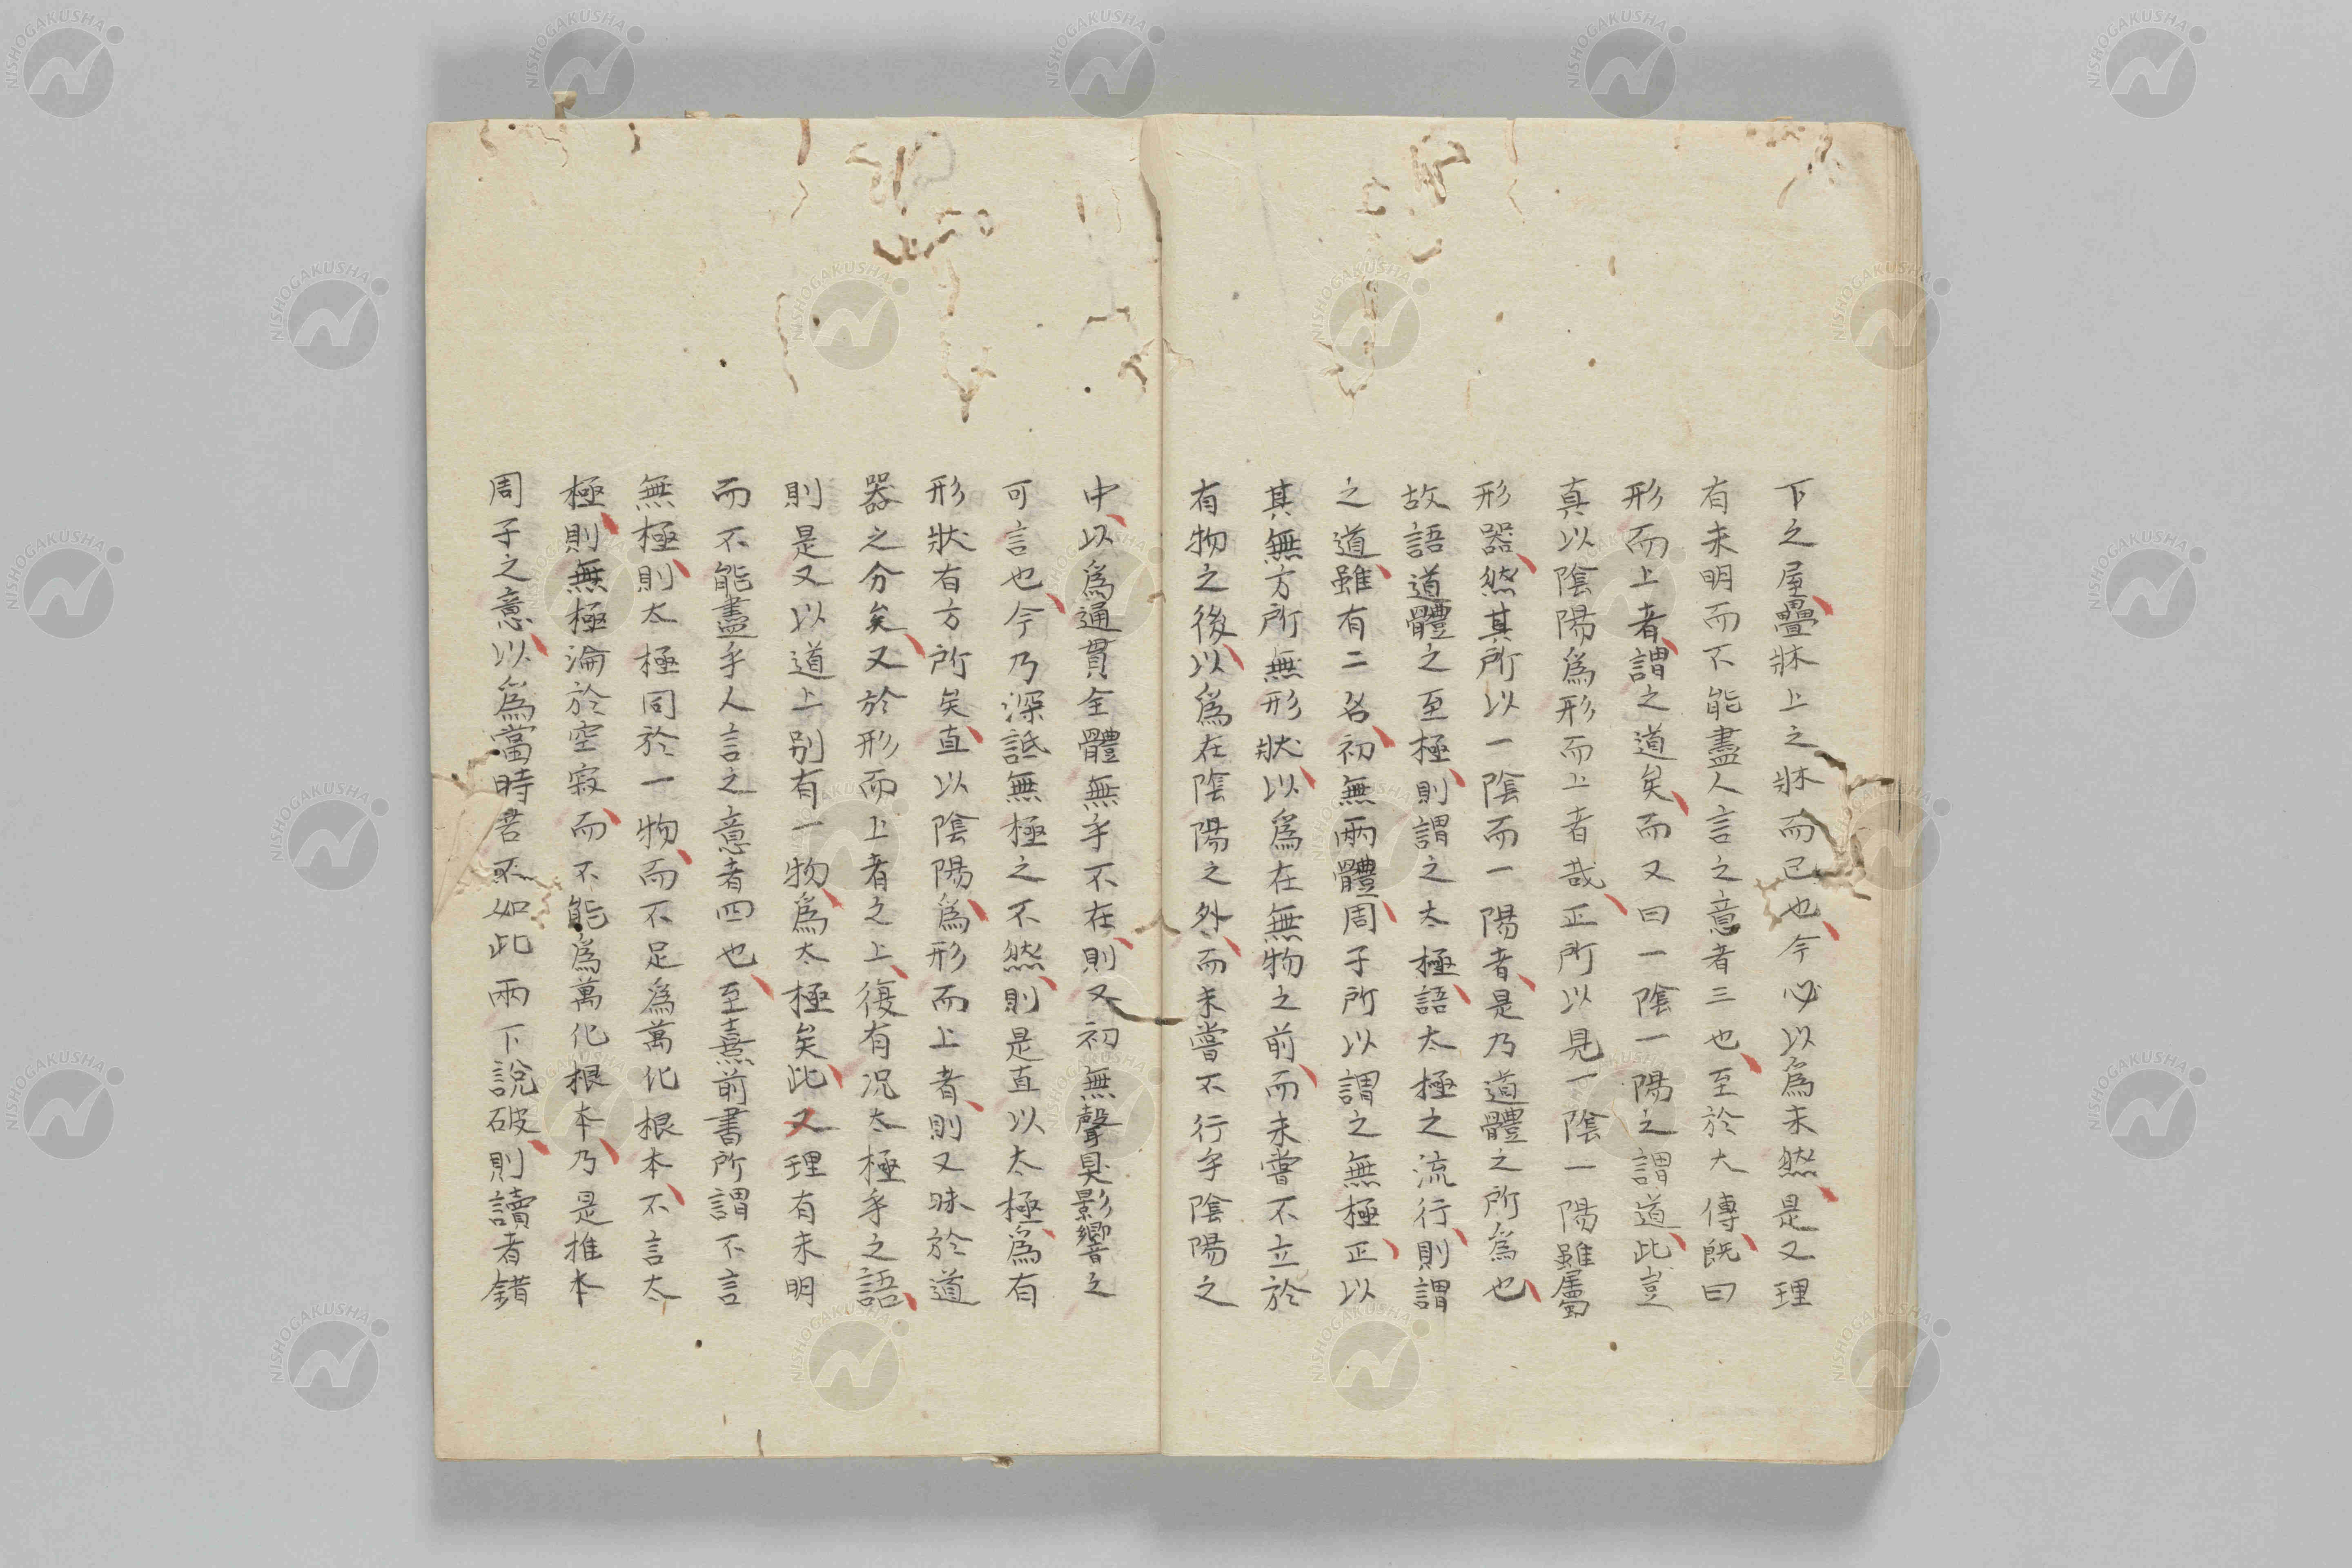 下之屋疊牀上之牀而已也今必以爲未然是又理
有未明而不能盡人言之意者三也至於大傳既曰
形而上者謂之道矣而又曰一陰一陽之謂道此豈
真以陰陽爲形而上者哉正所以見一陰一陽雖屬
形器然其所以一陰而一陽者是乃道體之所爲也
故語道體之至極則謂之太極語太極之流行則謂
之道雖有二名初無兩體周子所以謂之無極正以
其無方所無形狀以爲在無物之前而未嘗不立於
有物之後以爲在陰陽之外而未嘗不行乎陰陽之
中以爲通貫全體無乎不在則又初無聲臭影響之
可言也今乃深詆無極之不然則是直以太極爲有
形狀有方所矣直以陰陽爲形而上者則又昧於道
器之分矣又於形而上者之上復有况太極乎之語
則是又以道上別有一物爲太極矣此又理有未明
而不能盡乎人言之意者四也至熹前書所謂不言
無極則太極同於一物而不足爲萬化根本不言太
極則無極淪於空寂而不能爲萬化根本乃是推本
周子之意以爲當時若不如此兩下說破則讀者錯
NISHOGAKUSHA